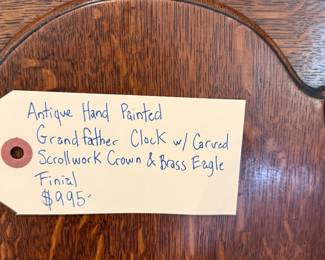 Antique Hand Painted
Grandfather Clock w/ Carved
Scrollwork Crown & Brass Eagle
Finial
$995-